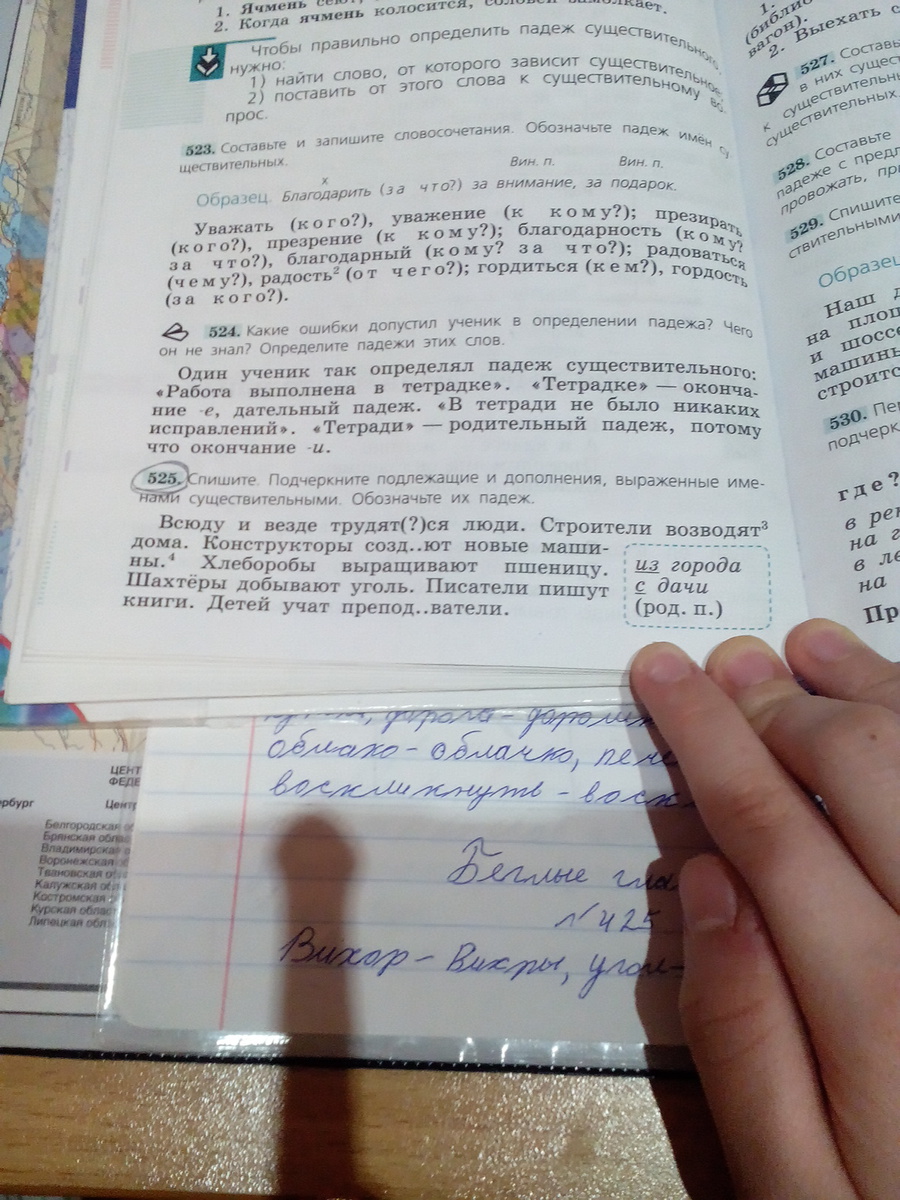 1. Ячмень
2. Когда ячмень колосится, соловей замолкает.
Чтобы правильно определить падеж существительного,
нужно:
1) найти слово, от которого зависит существительное
2) поставить от этого слова к существительному во-
прос.
523. Составьте и запишите словосочетания. Обозначьте падеж имён су-
ществительных.
Вин. п. Вин. п.
х
Образец. Благодарить (за что?) за внимание, за подарок.
Уважать (кого?), уважение (к кому?); презирать
(кого?), презрение (к кому?); благодарность (кому?
за что?), благодарный (кому? за что?); радоваться
(чему?), радость² (от чего?); гордиться (кем?), гордость
(за кого?).
524. Какие ошибки допустил ученик в определении падежа? Чего
он не знал? Определите падежи этих слов.
Один ученик так определял падеж существительного:
«Работа выполнена в тетрадке». «Тетрадке» — оконча-
ние -е, дательный падеж. «В тетради не было никаких
исправлений». «Тетради» — родительный падеж, потому
что окончание -и.
525. Спишите. Подчеркните подлежащие и дополнения, выраженные име-
нами существительными. Обозначьте их падеж.
Всюду и везде трудят(?)ся люди. Строители возводят³
дома. Конструкторы созд..ют новые маши-
ны.⁴ Хлеборобы выращивают пшеницу.
Шахтёры добывают уголь. Писатели пишут
книги. Детей учат препод..ватели.
из города
с дачи
(род. п.)
1.
(библио
вагон).
2. Выехать с
527. Составь
в них сущес
к существительны
существительных.
528. Составьте
падеже с предл
провожать, при
529. Спишите
ствительными
Образец
Наш д
на площ
и шоссе
машины
строитс
530. Пер
подчерк
где?
в рек
на г
в ле
на
Пр
дорога -
облако - облачко, пече
воскликнуть - воск
Беглые гла
№ 425
Вихор - Вихры, угол-
ЦЕНТ
ФЕДЕ
рбург
Центр
Белгородская о
Брянская облас
Владимирская
Воронежская об
Калужская об
Костромская
Курская облас
Липецкая обл